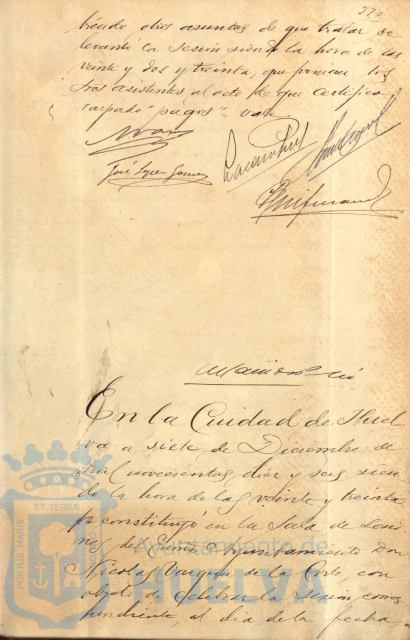 biendo otros asuntos de que tratar se
levanta la sesion siendo la hora de las
veinte y dos y treinta, que firman los
Sres asistentes al acto de que certifico
raspado "pagos" vale
José
En la Ciudad de Huel
va a siete de Diciembre de
mil novecientos diez y seis sien
do la hora de las veinte y treinta
se constituyó en la Sala de Sesio
nes del Excmo Ayuntamiento Don
Nicolas Vazquez de la Corte, con
objeto de celebrar la Sesión corres
pondiente al dia de la fecha
PORTUS MARIS
ET TERRÆ
Ayuntamiento de
HUELVA